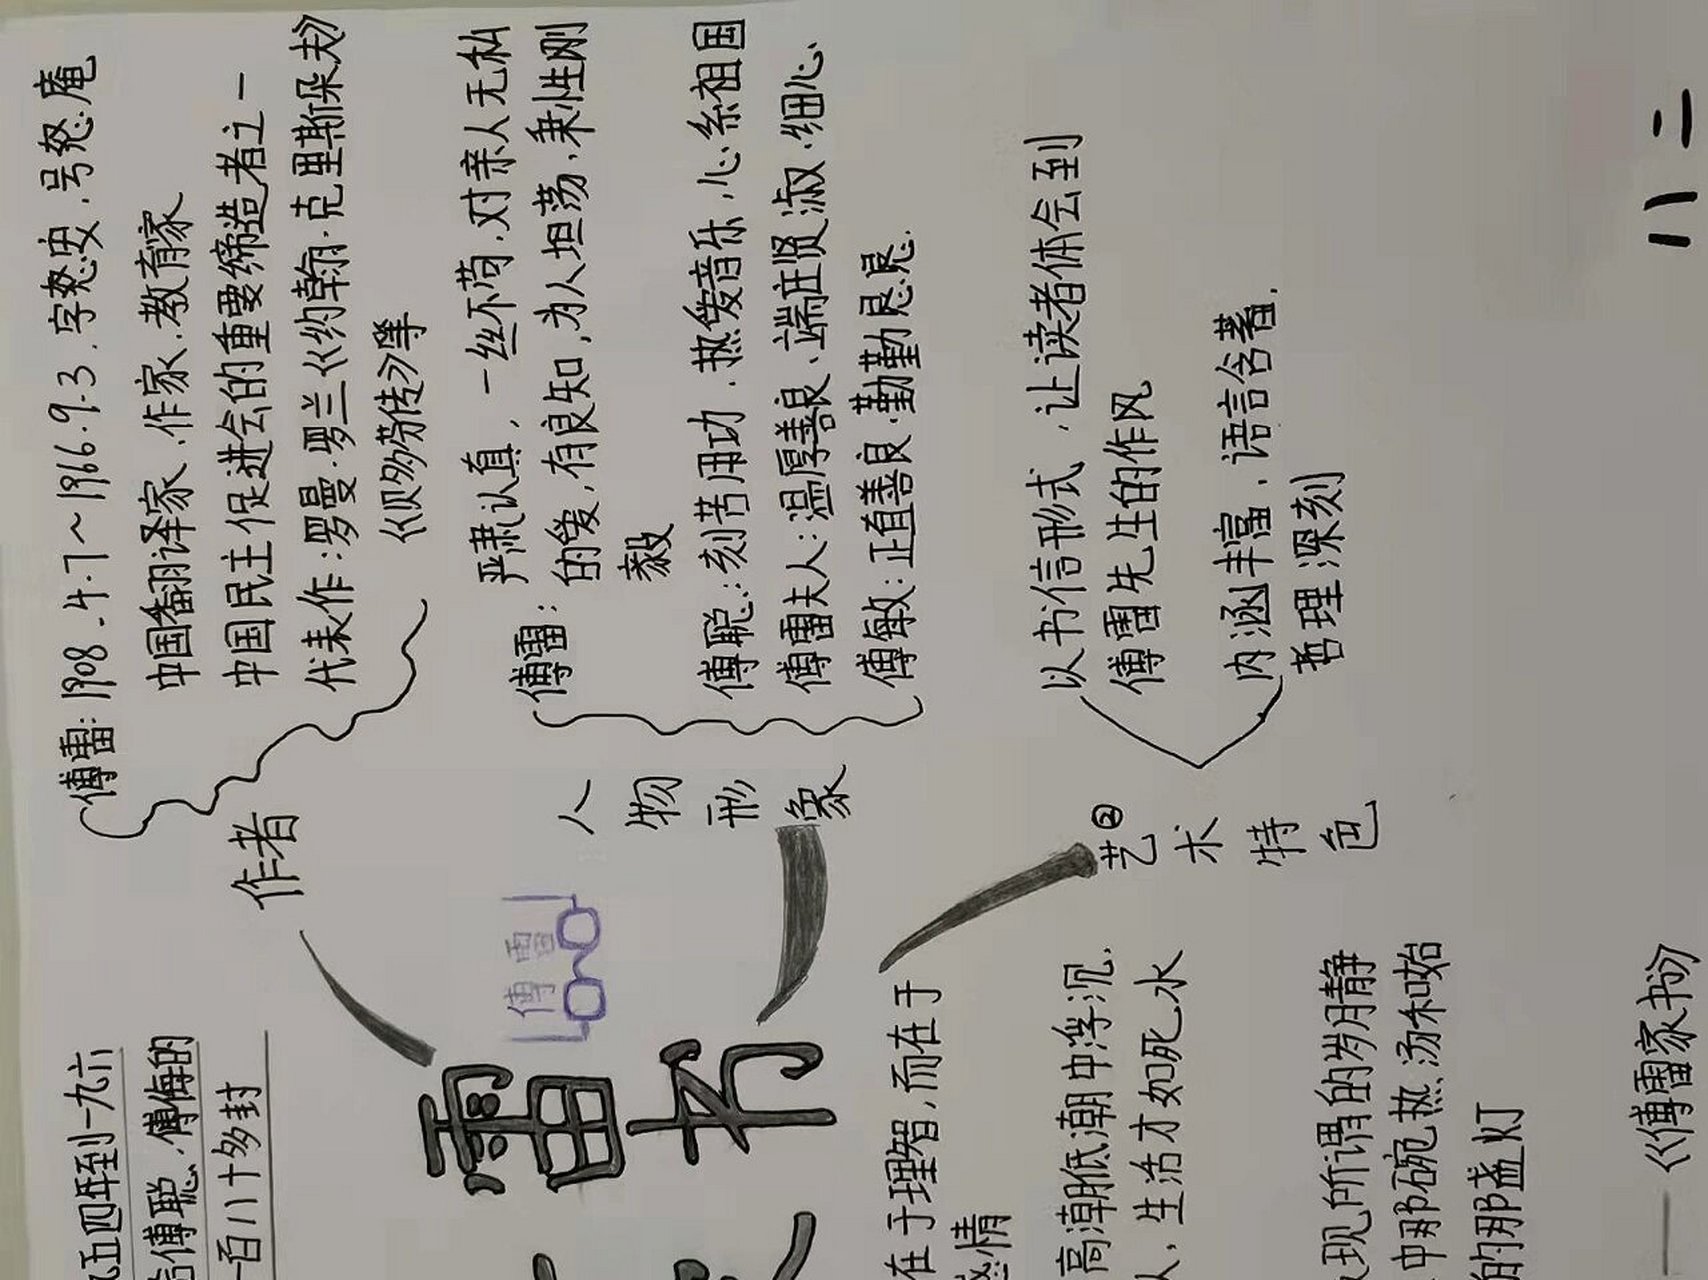 傅雷：1908.4.7～1966.9.3.字怒安.号怒庵
中国翻译家.作家.教育家
中国民主促进会的重要缔造者之一
代表作：罗曼.罗兰《约翰.克里斯朵夫》
《贝多芬传》等
作者
傅雷：
严肃认真，一丝不苟.对亲人无私
的爱.有良知.为人坦荡.秉性刚
毅
傅聪：刻苦用功.热爱音乐.心系祖国
傅雷夫人：温厚善良、端庄贤淑.细心.
傅敏：正直善良.勤勤恳恳.
人物形象
以书信形式，让读者体会到
傅雷先生的作风
内涵丰富.语言含蓄.
哲理深刻
②
艺术特色
傅雷
雷
书
五四年至一九六
傅聪.傅敏的
一百八十多封
在于理智.而在于
感情
高潮低潮中浮沉.
，生活才如死水
现所谓的岁月静
中那碗热汤和始
的那盏灯
——《傅雷家书》
八二